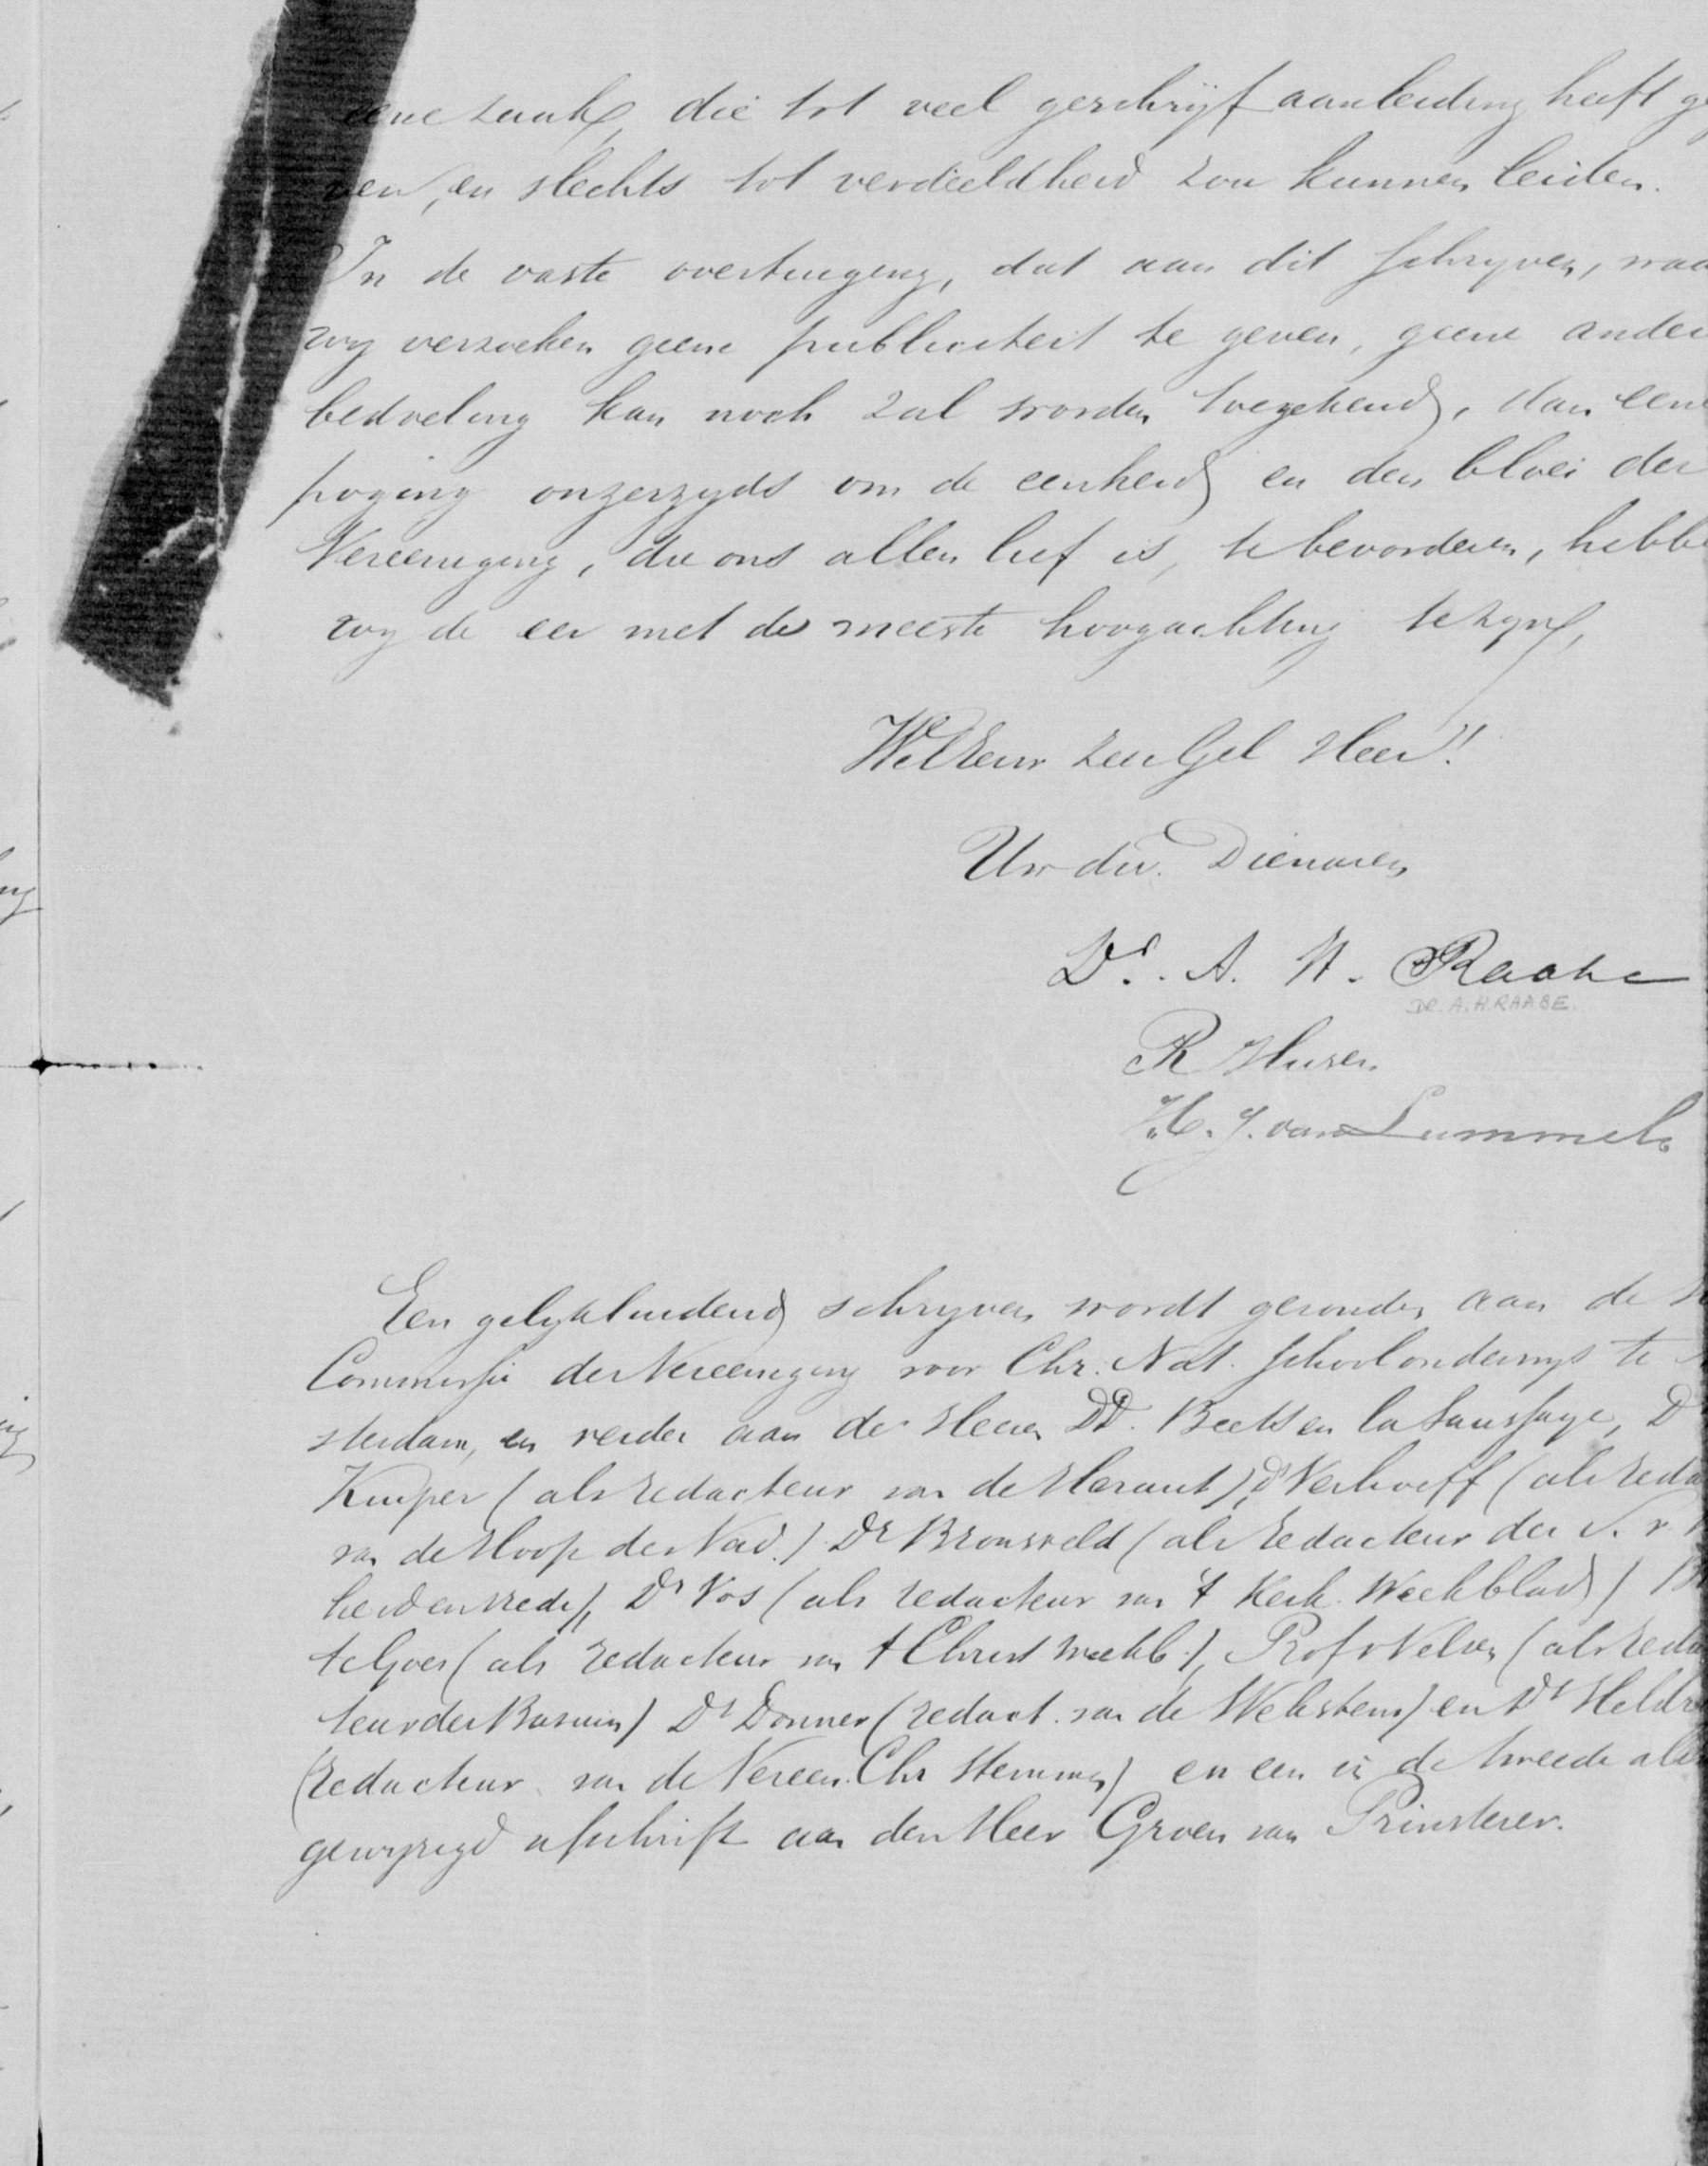 eene zaak, die tot veel geschrijf aanleiding heeft ge
ven, en slechts tot verdeeldheid zou kunnen leiden.
In de vaste overtuiging, dat aan dit schryven, waa
wy verzoeken geene publiciteit te geven, geene ander
bedoeling kan noch zal worden toegekend, dan eene
poging onzerzyds om de eenheid en den bloei der
Vereeniging, die ons allen lief is, te bevorderen, hebbe
wy de eer met de meeste hoogachting te zyn,
WelEerw zeer Gel Heer!
Uw dw. Dienaren
Dr. A. H. Raabe
DR. A. H. RAABE.
R Husen
H. J. van Lummel
Een gelykluidend schryven wordt gezonden aan de
Commissie der Vereeniging voor Chr. Nat. Schoolonderwys te
sterdam, en verder aan de Heeren DD. Beets en la Saussaye, D
Kuyper (als redacteur van de Heraut), ds Verhoeff (als reda
van de Hoop der Nat.) Dr Bronsveld (als redacteur der S. v. W
heid en vrede), Ds Vos (als redacteur van 't Kerk. Weekblad)
te Goes (als redacteur van 't Christ weekb.), Prof v Velzen (als redac
teur der Bazuin) Ds Donner (redact. van de Wekstem) en Ds Heldr
(redacteur van de Vereen. Chr Stemmen) en een in de tweede al
gewyzigd afschrift aan den Heer Groen van Prinsterer.